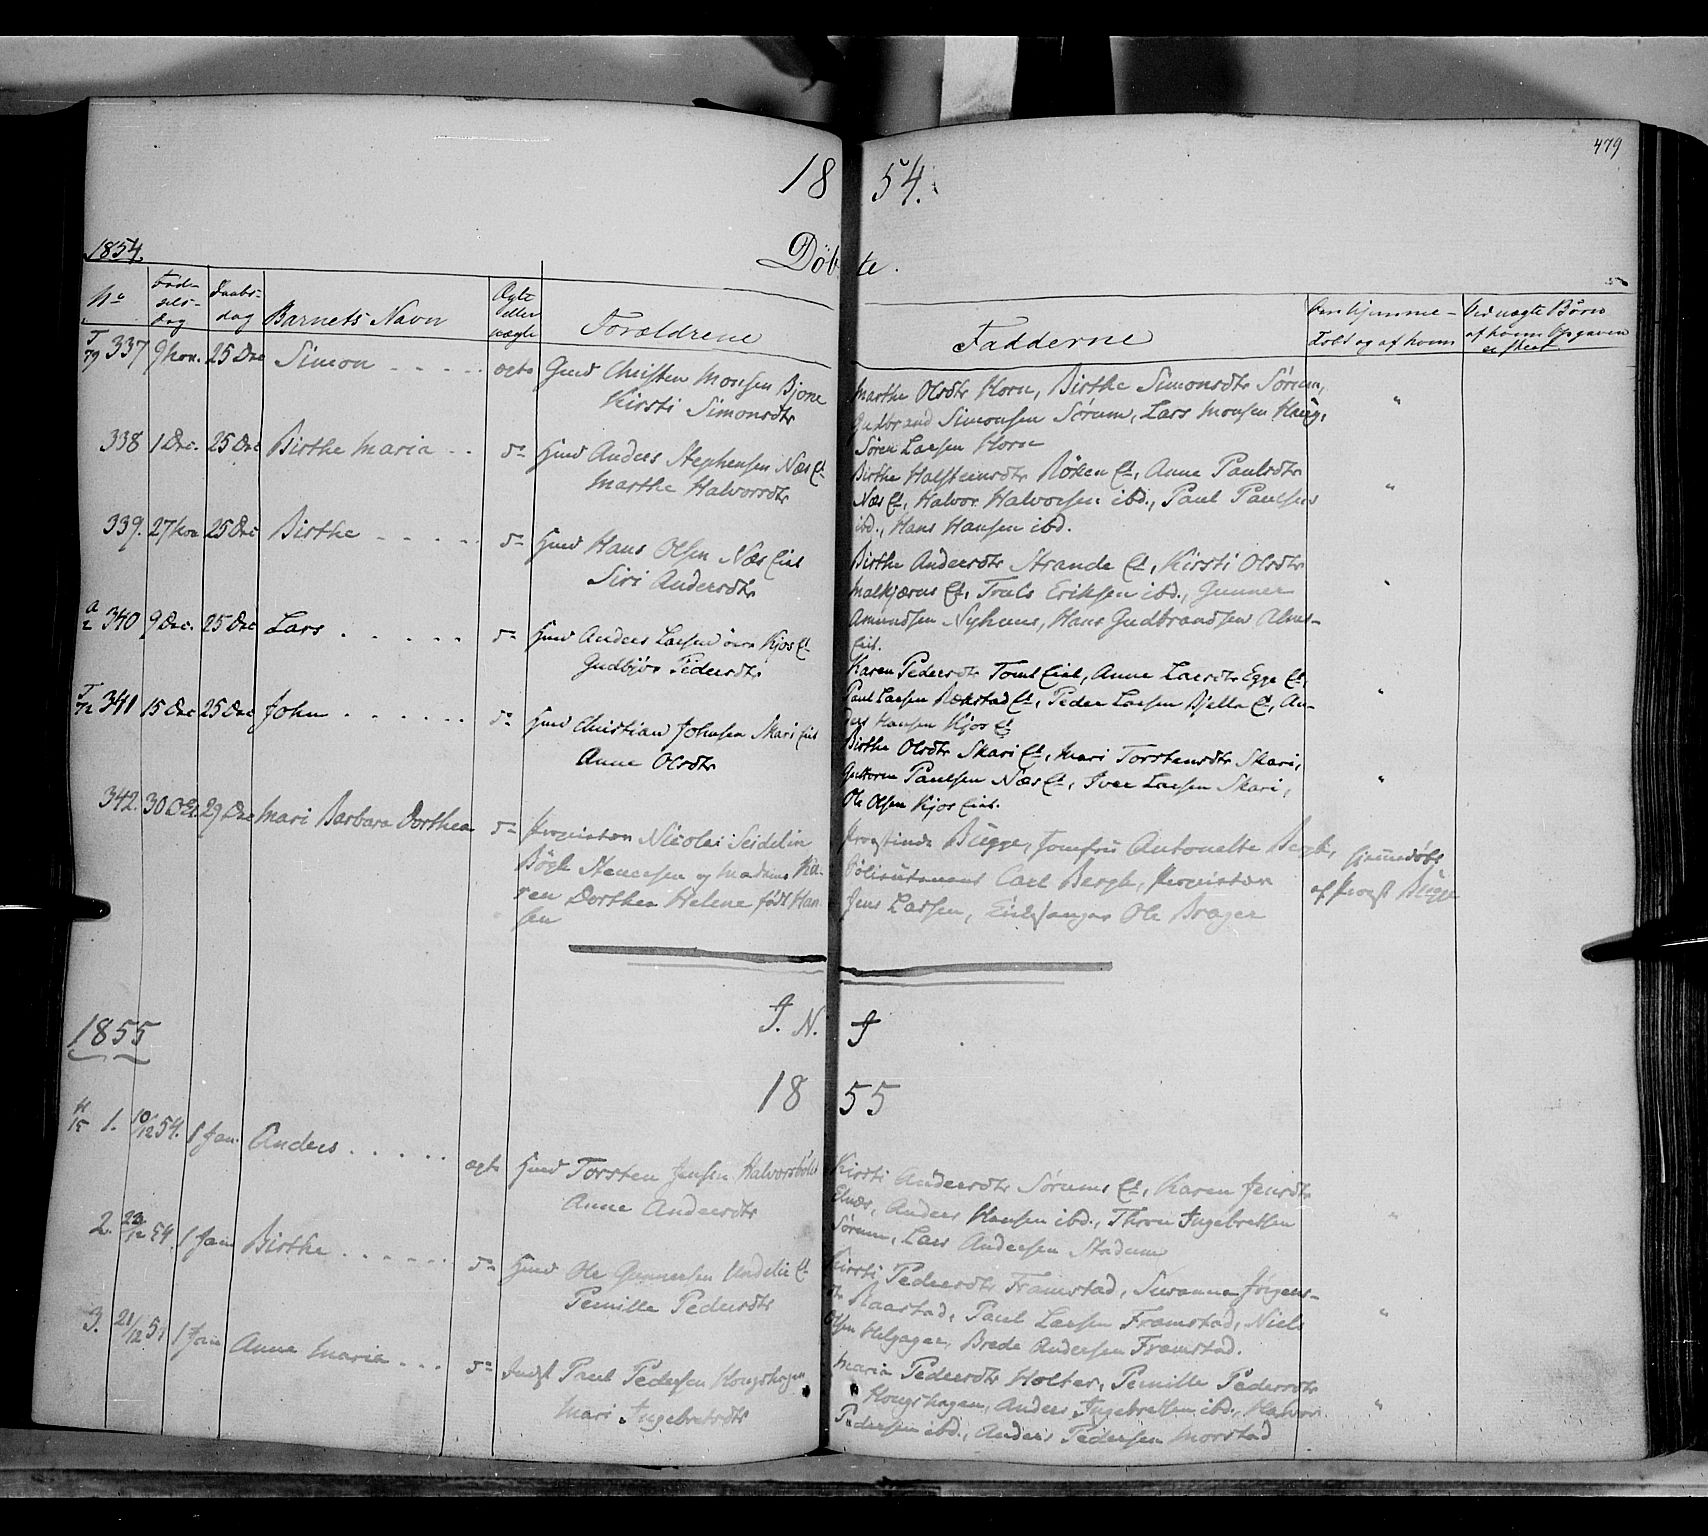 479
18 54.
1854.
Döbte.
No Fødselsdag Daabsdag Barnets Navn Ægte eller uægte Forældrene Fadderne
337 9 Nov. 25 Dec Simon ægte Gmd Christen Monsen Bjone
Kirsti Simonsdtr
Marthe Olsdtr Horn, Birthe Simonsdtr Sørum,
Gudbrand Simonsen Sørum, Lars Monsen Haug,
Søren Larsen Horn
338 1 Dec. 25 Dec Birthe Maria do Hmd Anders Stephensen Næs Et
Marthe Halvorsdtr
Birthe Halsteinsdtr Røken Et, Anne Paulsdtr
Næs Et, Halvor Halvorsen ibd., Paul Paulsen
ibd., Hans Hansen ibd.
339. 27 Nov 25 Dec Birthe do Hmd Hans Olsen Næs Eiet
Siri Andersdtr
Birthe Andersdtr Strande Et, Kirsti Olsdtr
Malkjærns Et, Truls Eriksen ibd., Gunner
Amundsen Nyhuus, Hans Gudbrandsen Alm
Eiet.
340 9 Dec. 25 Dec Lars do Hmd Anders Larsen Kjos Et
Gudbjør Pedersdtr
Karen Pedersdtr Tomt Eiet, Anne Larsdtr Egge Et,
Paul Larsen Rækstad Et, Peder Larsen Bjella Et, An-
ders Hansen Kjos Et
341 15 Dec 25 Dec John do Hmd Christian Johnsen Skari Eiet
Anne Olsdtr
Birthe Olsdtr Skari Et, Mari Torstensdtr Skari,
Guttorm Paulsen Næs Et, Iver Larsen Skari,
Ole Olsen Kjos Eiet.
342. 30 Oct. 29 Dec Mari Barbara Dorthea do Proprietær Nicolai Seidelin
Bøgh Stenersen og Madame Ka-
ren Dorthea Helene født Han-
sen
Provstinde Bugge, Jomfru Antonette Bergh,
Carl Bergh, Proprietær
Jens Larsen, Kirkesanger Ole Brager
Hjemmedøbt
af Provst Bugge
J. N. J
1855
18 55
1. 10/12 54. 1 Jan. Anders ægte Hmd Torsten Jensen Halvorsbøle
Anne Andersdtr
Kirsti Andersdtr Sørums Et, Karen Jensdtr
Elnæs, Anders Hansen ibd., Thron Ingebretsen
Sørum, Lars Andersen Stadum
2. 23/12 54. 1 Jan Birthe do Hmd Ole Gunnersen Undelie Et
Pernille Pedersdtr
Kirsti Pedersdtr Framstad, Susanna Jørgens-
dtr Raastad, Paul Larsen Framstad, Niels
Olsen Helgager, Brede Andersen Framstad.
3. 21/12 54 1 Jan Anne Maria do Indst Paul Pedersen Kongshagen
Mari Ingebretsdtr
Maria Pedersdtr Holter, Pernille Pedersdtr
Kongshagen, Anders Ingebretsen ibd., Halvor
Pedersen ibd., Anders Pedersen Morstad